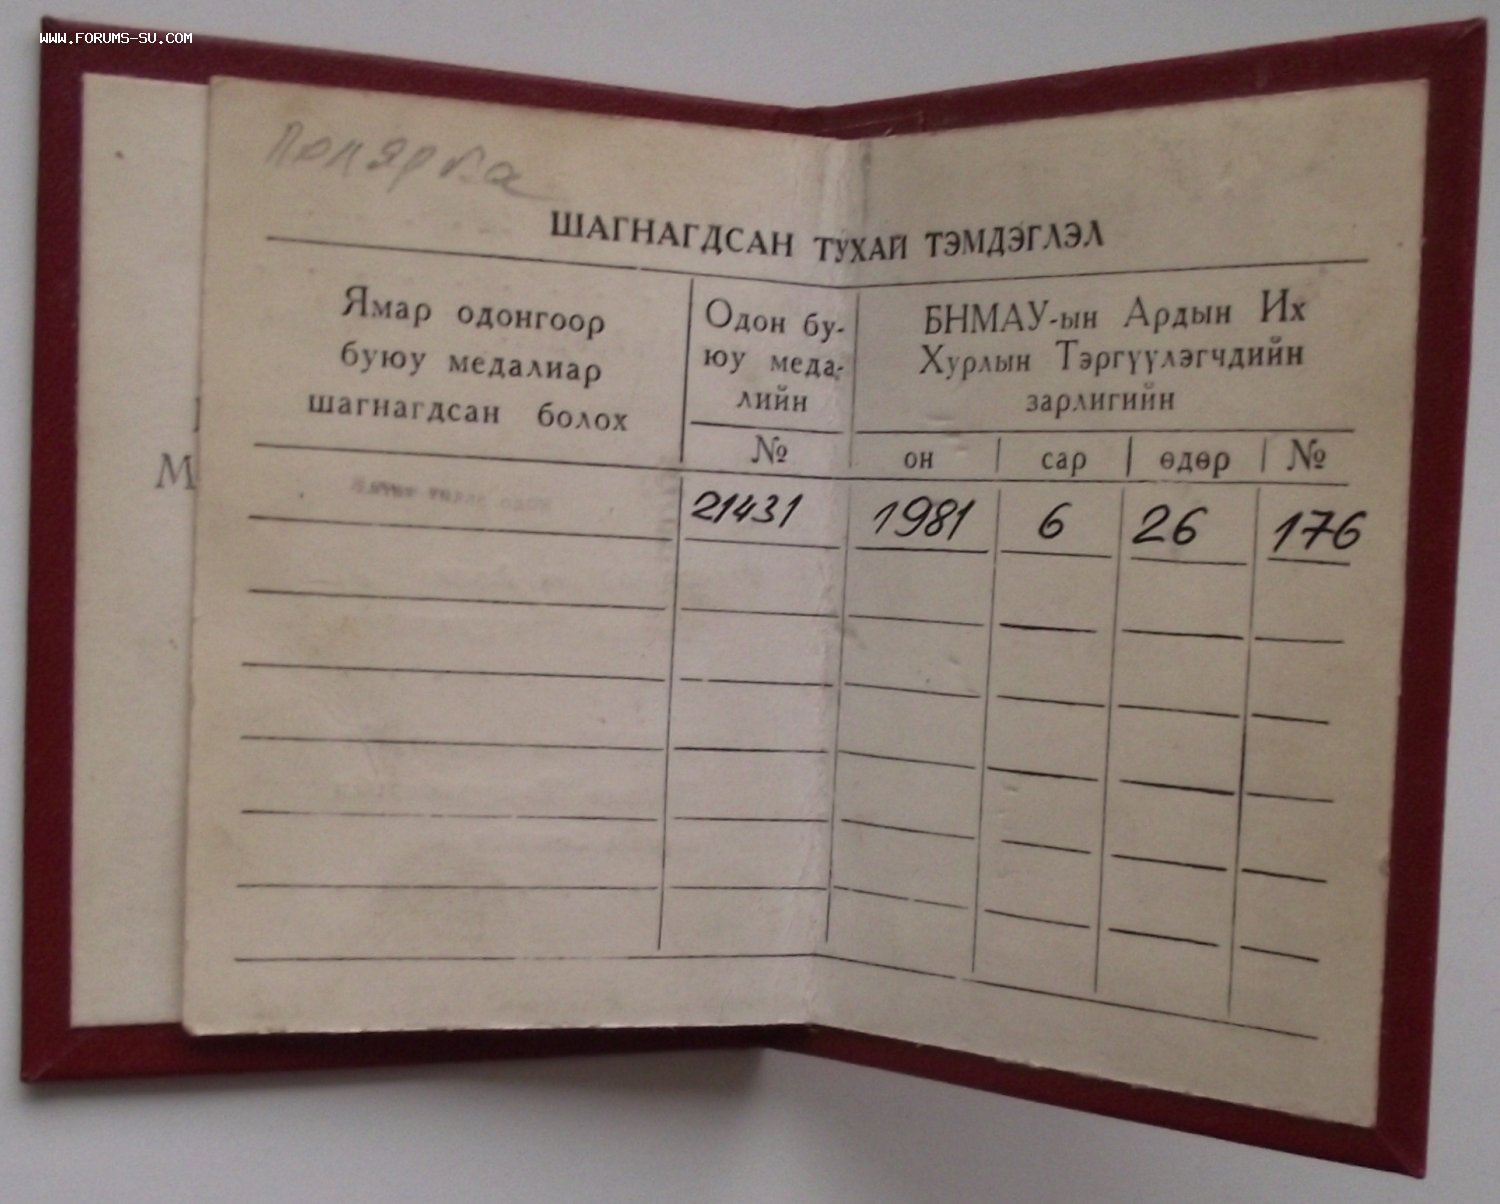 WWW.FORUMS-SU.COM
Полярка
ШАГНАГДСАН ТУХАЙ ТЭМДЭГЛЭЛ
Ямар одонгоор
буюу медалиар
шагнагдсан болох
Одон бу-
юу меда-
лийн
№
БНМАУ-ын Ардын Их
Хурлын Тэргүүлэгчдийн
зарлигийн
он сар өдөр №
21431 1981 6 26 176
М